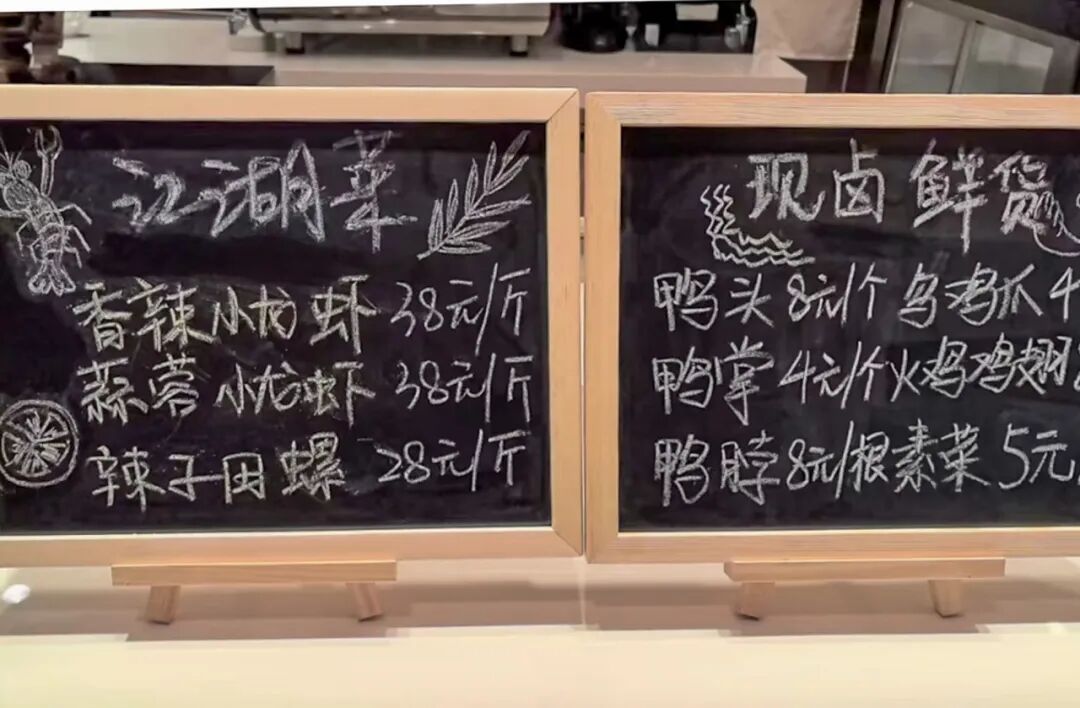 江湖菜
香辣小龙虾 38元/斤
蒜蓉小龙虾 38元/斤
辣子田螺 28元/斤
现卤鲜货
鸭头8元/个 乌鸡爪4
鸭掌4元/个火鸡鸡翅
鸭脖8元/根素菜5元